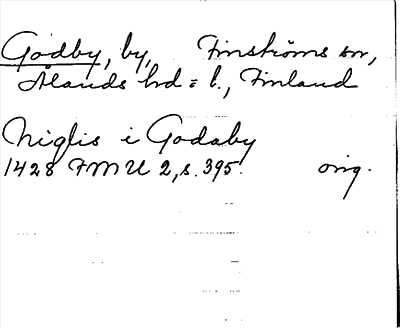 Godby, by, Finströms sn,
Ålands hd o. l., Finland
Niglis i Godaby
1428 FMU 2, s. 395. orig.